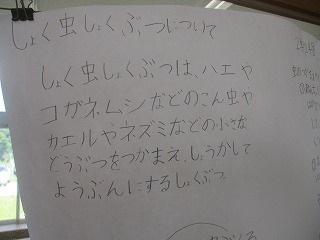 しょく虫しょくぶつについて
しょく虫しょくぶつは、ハエや
コガネムシなどのこん虫や
カエルやネズミなどの小さな
どうぶつをつかまえ、しょうかして
ようぶんにするしょくぶつ。